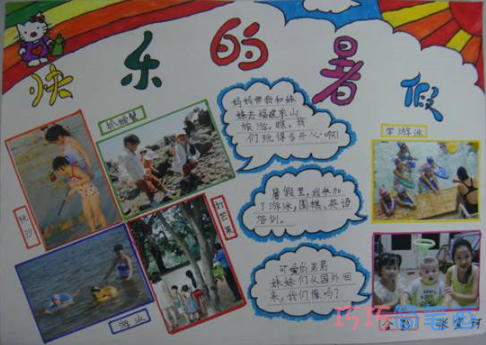 快乐的暑假
抓螃蟹
学游泳
妈妈带我和妹
妹去福建东山
旅游，哦，我
们玩得多开心啊！
挑沙
打芒果
暑假里，我参加
了游泳，围棋、英语
培训。
可爱的弟弟
妹妹们从国外回
来，我们像吗？
游泳
合影
巧巧简笔画